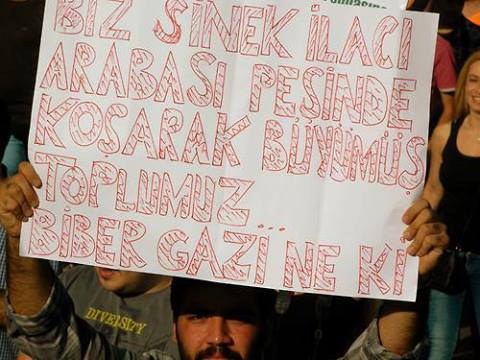 BİZ SİNEK İLACI
ARABASI PEŞİNDE
KOŞARAK BÜYÜMÜŞ
TOPLUMUZ...
BİBER GAZI NE Kİ
DIVERSITY